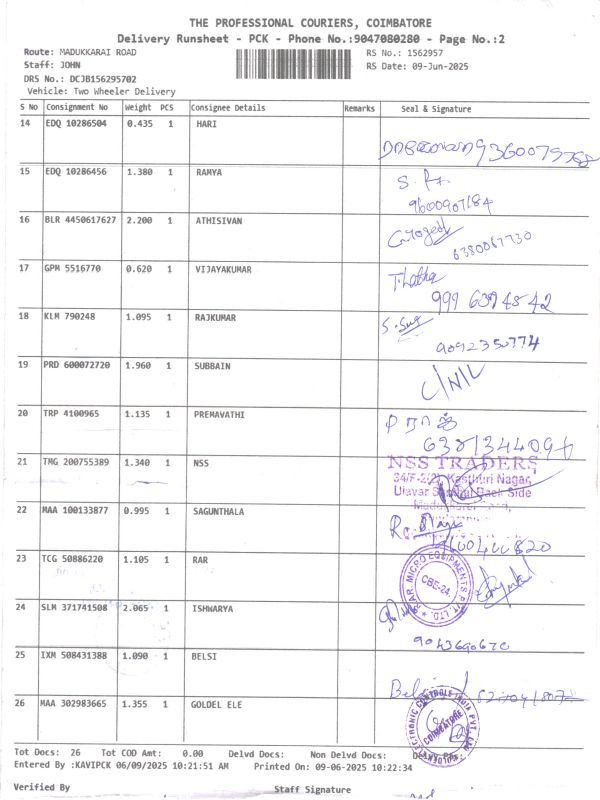 THE PROFESSIONAL COURIERS, COIMBATORE
Delivery Runsheet - PCK - Phone No.:9047080280 - Page No.:2
Route: MADUKKARAI ROAD RS No.: 1562957
Staff: JOHN RS Date: 09-Jun-2025
DRS No.: DCJB156295702
Vehicle: Two Wheeler Delivery
S No Consignment No Weight PCS Consignee Details Remarks Seal & Signature
14 EDQ 10286504 0.435 1 HARI
15 EDQ 10286456 1.380 1 RAMYA
9600907184
16 BLR 4450617627 2.200 1 ATHISIVAN
6380067730
17 GPM 5516770 0.620 1 VIJAYAKUMAR
T. Latha
999 6394842
18 KLM 790248 1.095 1 RAJKUMAR
9092350774
19 PRD 600072720 1.960 1 SUBBAIN
C/N/L
20 TRP 4100965 1.135 1 PREMAVATHI
21 TMG 200755389 1.340 1 NSS
NSS TRADERS
34/F-2(2), Kasthuri Nagar,
Back Side
22 MAA 100133877 0.995 1 SAGUNTHALA
23 TCG 50886220 1.105 1 RAR
R.A.R. MICRO EQUIPMENTS PVT. LTD.
CBE-24.
24 SLM 371741508 2.065 1 ISHWARYA
9043690670
25 IXM 508431388 1.090 1 BELSI
Belsi
26 MAA 302983665 1.355 1 GOLDEL ELE
COIMBATORE
Tot Docs: 26 Tot COD Amt: 0.00 Delvd Docs: Non Delvd Docs:
Entered By :KAVIPCK 06/09/2025 10:21:51 AM Printed On: 09-06-2025 10:22:34
Verified By Staff Signature